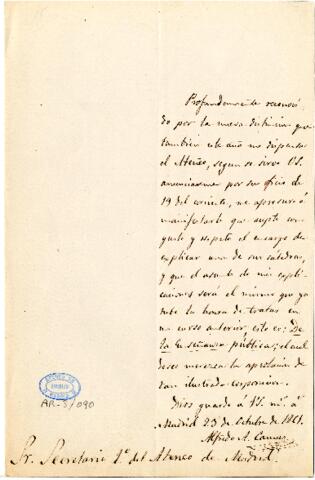 Profundamente reconoci-
do por la nueva distincion que
tambien este año me dispensa
el Ateneo, segun se sirve VS.
anunciarme por su oficio de
19 del corriente, me apresuro á
manifestarle que acepto con
gusto y respeto el encargo de
explicar una de sus cátedras,
y que el asunto de mis expli-
caciones será el mismo que ya
tube la honra de tratar en
un curso anterior, esto es: De
la Enseñanza pública; el cual
deseo merezca la aprobacion de
tan ilustrada corporacion.
Dios guarde á VS. m.s a.s
Madrid 23 de Octubre de 1861.
Alfredo A. Camus
AR-S/090
ATENEO DE
MADRID
Sr. Secretario 1º del Ateneo de Madrid.